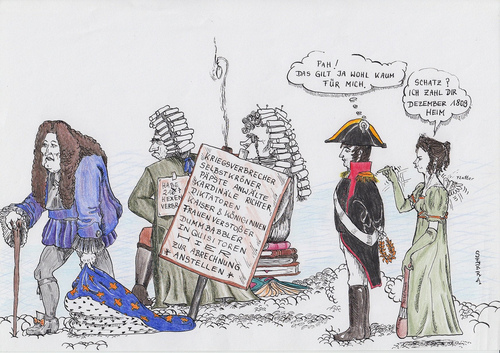 PAH!
DAS GILT JA WOHL KAUM
FÜR MICH.
SCHATZ?
ICH ZAHL DIR
DEZEMBER 1809
HEIM
HABE
HEXEN
KRIEGSVERBRECHER
SELBSTKRÖNER
PÄPSTE ANWÄLTE
KARDINÄLE RICHTER
DIKTATOREN
KAISER & KÖNIGINNEN
FRAUENVERSTOßER
DUMMBABBLER
INQUISITOREN
HIER
ZUR ABRECHNUNG
* ANSTELLEN *